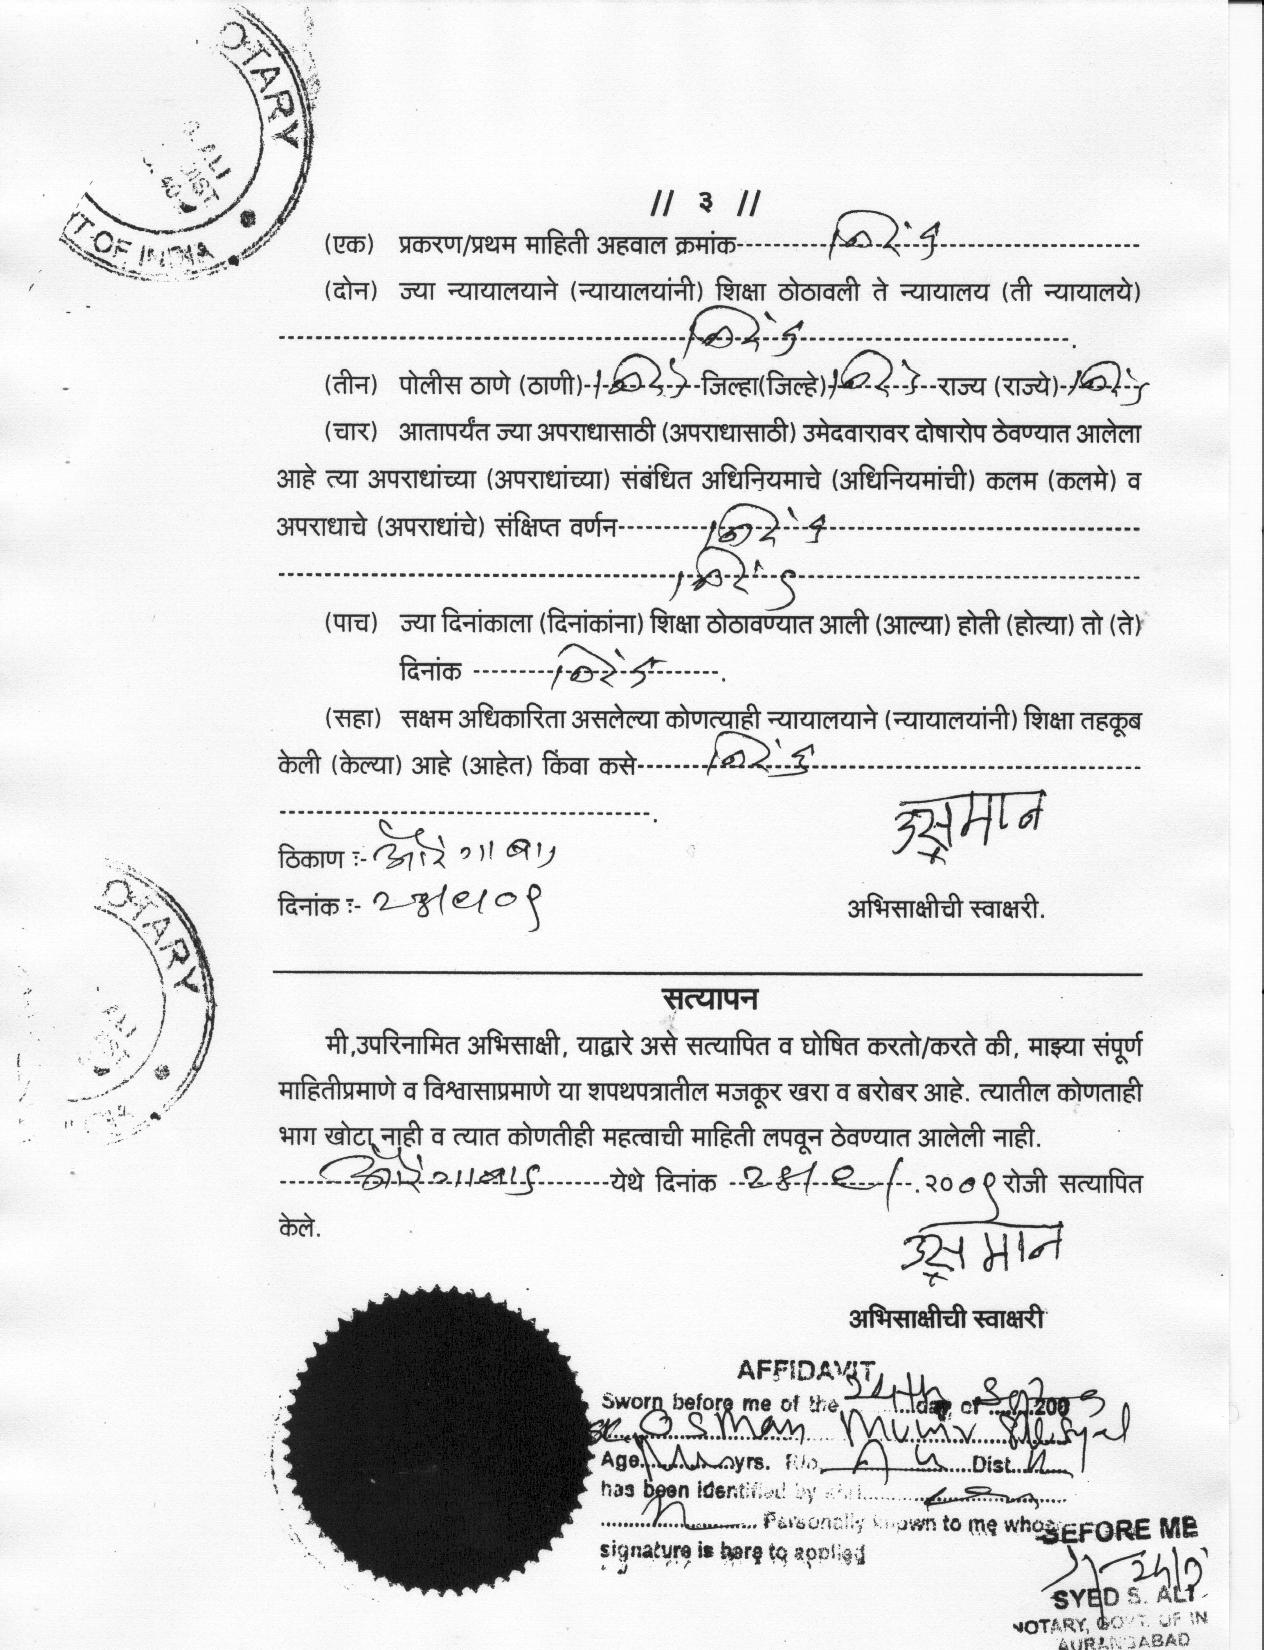 OTARY
ALI
DIST
T OF INDIA
// ३ //
(एक) प्रकरण/प्रथम माहिती अहवाल क्रमांक---निरंक---
(दोन) ज्या न्यायालयाने (न्यायालयांनी) शिक्षा ठोठावली ते न्यायालय (ती न्यायालये)
---निरंक---.
(तीन) पोलीस ठाणे (ठाणी)--निरंक--जिल्हा(जिल्हे)--निरंक--राज्य (राज्ये)--निरंक
(चार) आतापर्यंत ज्या अपराधासाठी (अपराधासाठी) उमेदवारावर दोषारोप ठेवण्यात आलेला
आहे त्या अपराधांच्या (अपराधांच्या) संबंधित अधिनियमाचे (अधिनियमांची) कलम (कलमे) व
अपराधाचे (अपराधांचे) संक्षिप्त वर्णन---निरंक---
---निरंक---
(पाच) ज्या दिनांकाला (दिनांकांना) शिक्षा ठोठावण्यात आली (आल्या) होती (होत्या) तो (ते)
दिनांक ---निरंक---.
(सहा) सक्षम अधिकारिता असलेल्या कोणत्याही न्यायालयाने (न्यायालयांनी) शिक्षा तहकूब
केली (केल्या) आहे (आहेत) किंवा कसे---निरंक---
---.
उस्मान
ठिकाण :- औरंगाबाद
दिनांक :- २४/९/०९
अभिसाक्षीची स्वाक्षरी.
OTARY
ALI
DIST
सत्यापन
मी,उपरिनामित अभिसाक्षी, याद्वारे असे सत्यापित व घोषित करतो/करते की, माझ्या संपूर्ण
माहितीप्रमाणे व विश्वासाप्रमाणे या शपथपत्रातील मजकूर खरा व बरोबर आहे. त्यातील कोणताही
भाग खोटा नाही व त्यात कोणतीही महत्वाची माहिती लपवून ठेवण्यात आलेली नाही.
---औरंगाबाद---येथे दिनांक --२४/९/--.२००९ रोजी सत्यापित
केले.
उस्मान
अभिसाक्षीची स्वाक्षरी
AFFIDAVIT
Sworn before me of the 24th day of Sep 2009
Osman
Age.......yrs. R/o.......Dist.
has been identified by shri.......
....... Personally known to me whose
signature is here to applied
BEFORE ME
SYED S. ALI
NOTARY, GOVT. OF IN
AURANGABAD